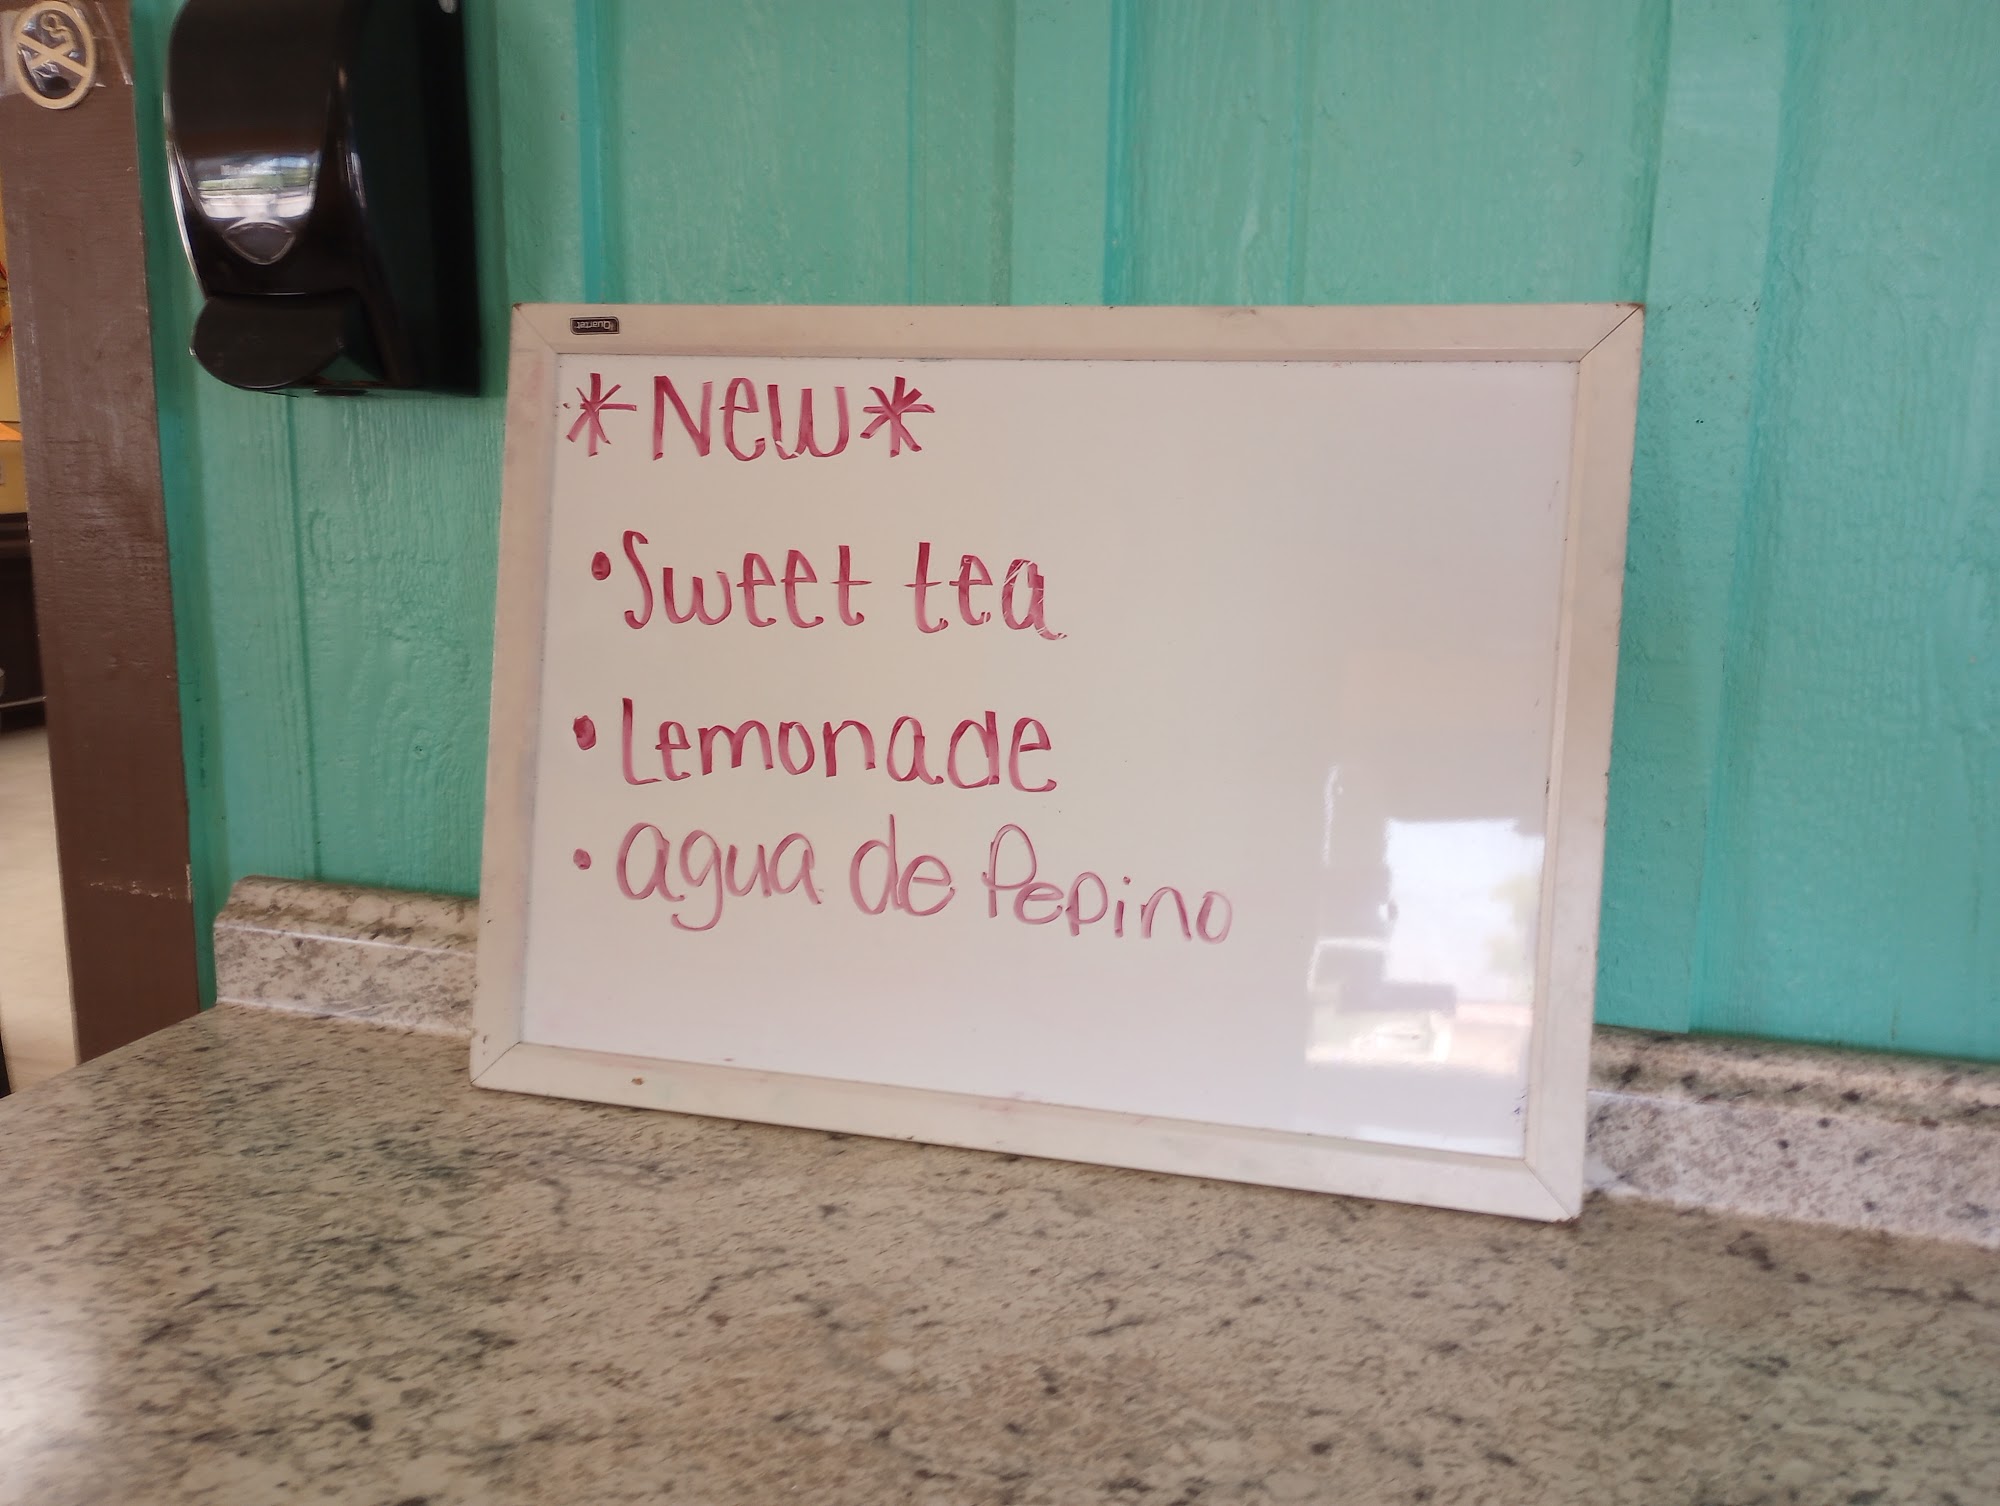 Quartet
*New*
• Sweet tea
• Lemonade
• agua de Pepino